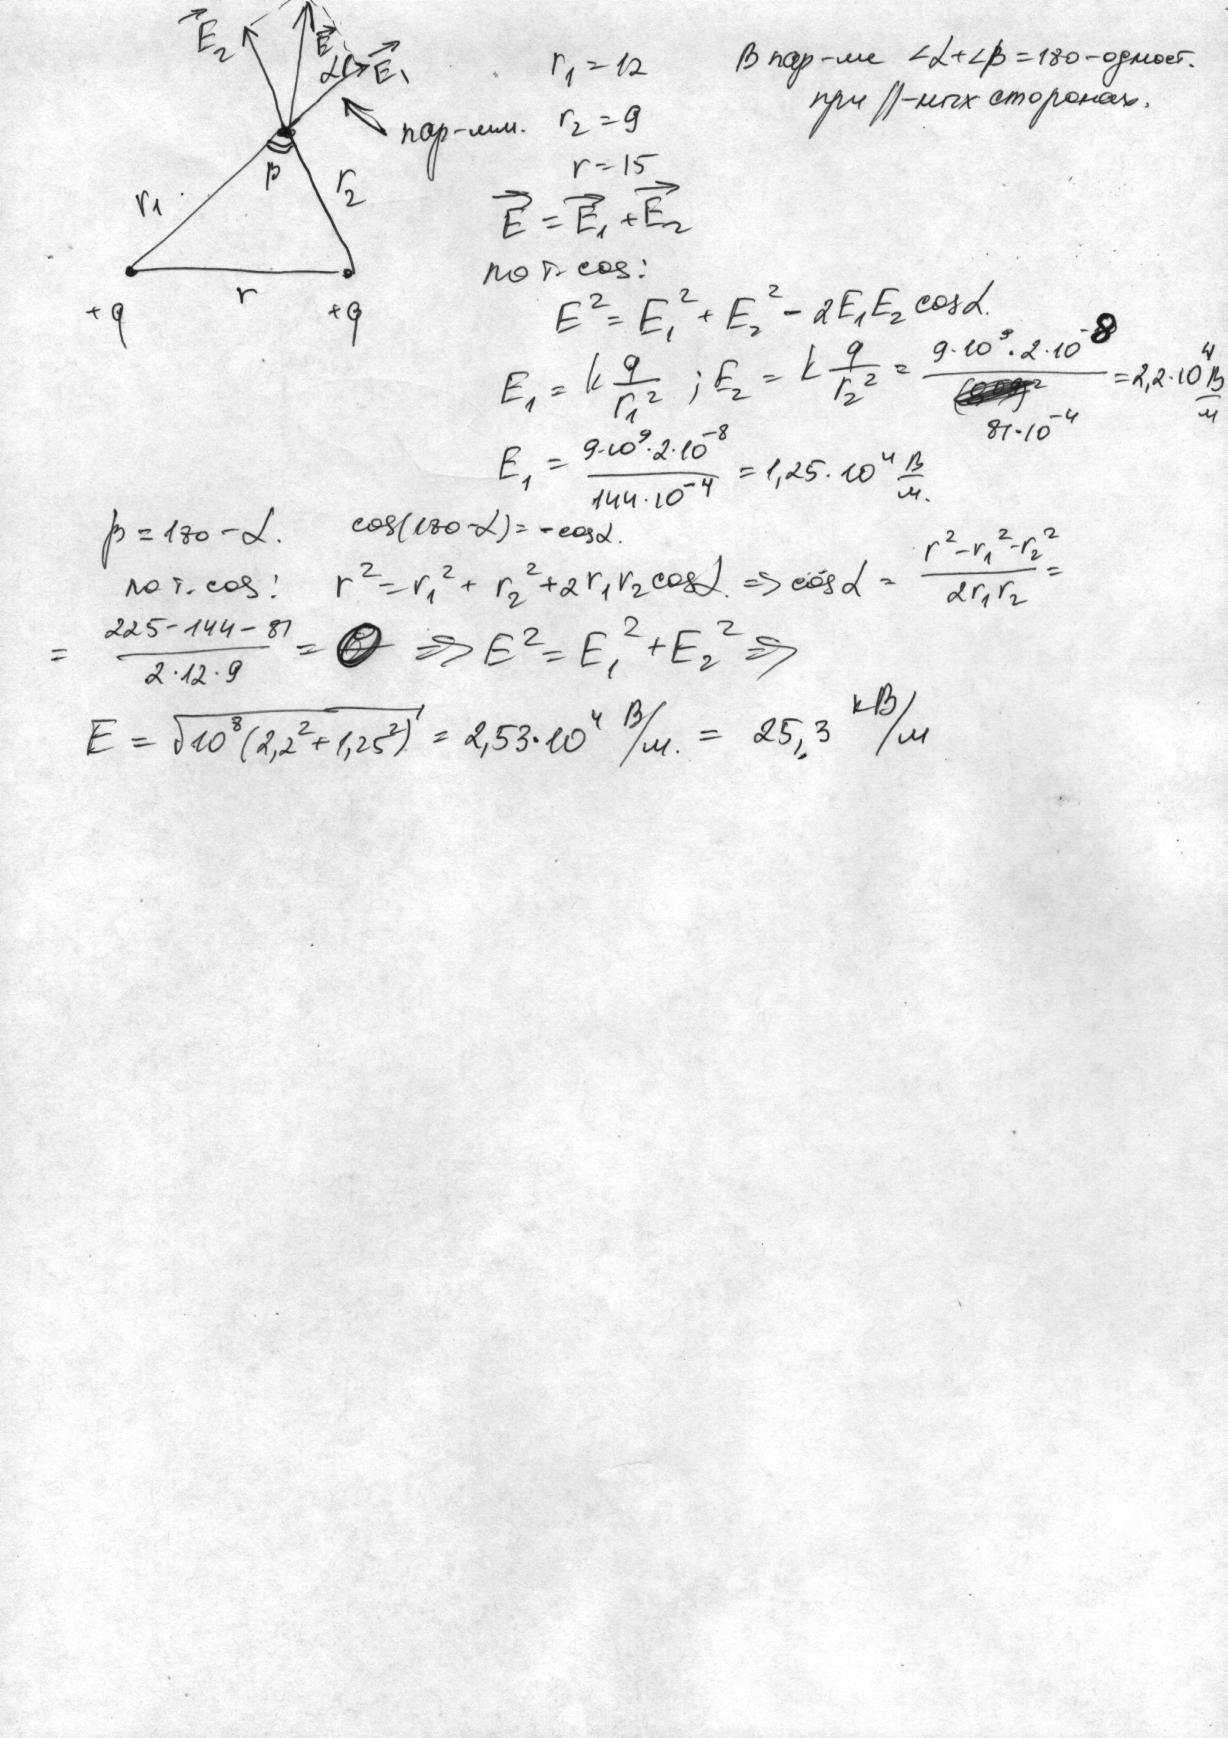 E⃗₂ E⃗ α E⃗₁
r₁ = 12
В пар-ме ∠α+∠β=180-одност.
при ||-ных сторонах.
пар-мм. r₂ = 9
β
r = 15
r₁ r₂
E⃗ = E⃗₁ + E⃗₂
r
+q +q
по т. cos:
E² = E₁² + E₂² - 2E₁E₂ cosα.
E₁ = k q/r₁² ; E₂ = k q/r₂² = 9·10⁹·2·10⁻⁸/81·10⁻⁴ = 2,2·10⁴ В/м
E₁ = 9·10⁹·2·10⁻⁸/144·10⁻⁴ = 1,25·10⁴ В/м.
β = 180-α. cos(180-α) = -cosα.
по т. cos: r² = r₁² + r₂² + 2r₁r₂cosα. => cosα = r²-r₁²-r₂²/2r₁r₂ =
= 225-144-81/2·12·9 = 0 => E² = E₁² + E₂² =>
E = √10⁸(2,2²+1,25²) = 2,53·10⁴ В/м. = 25,3 кВ/м